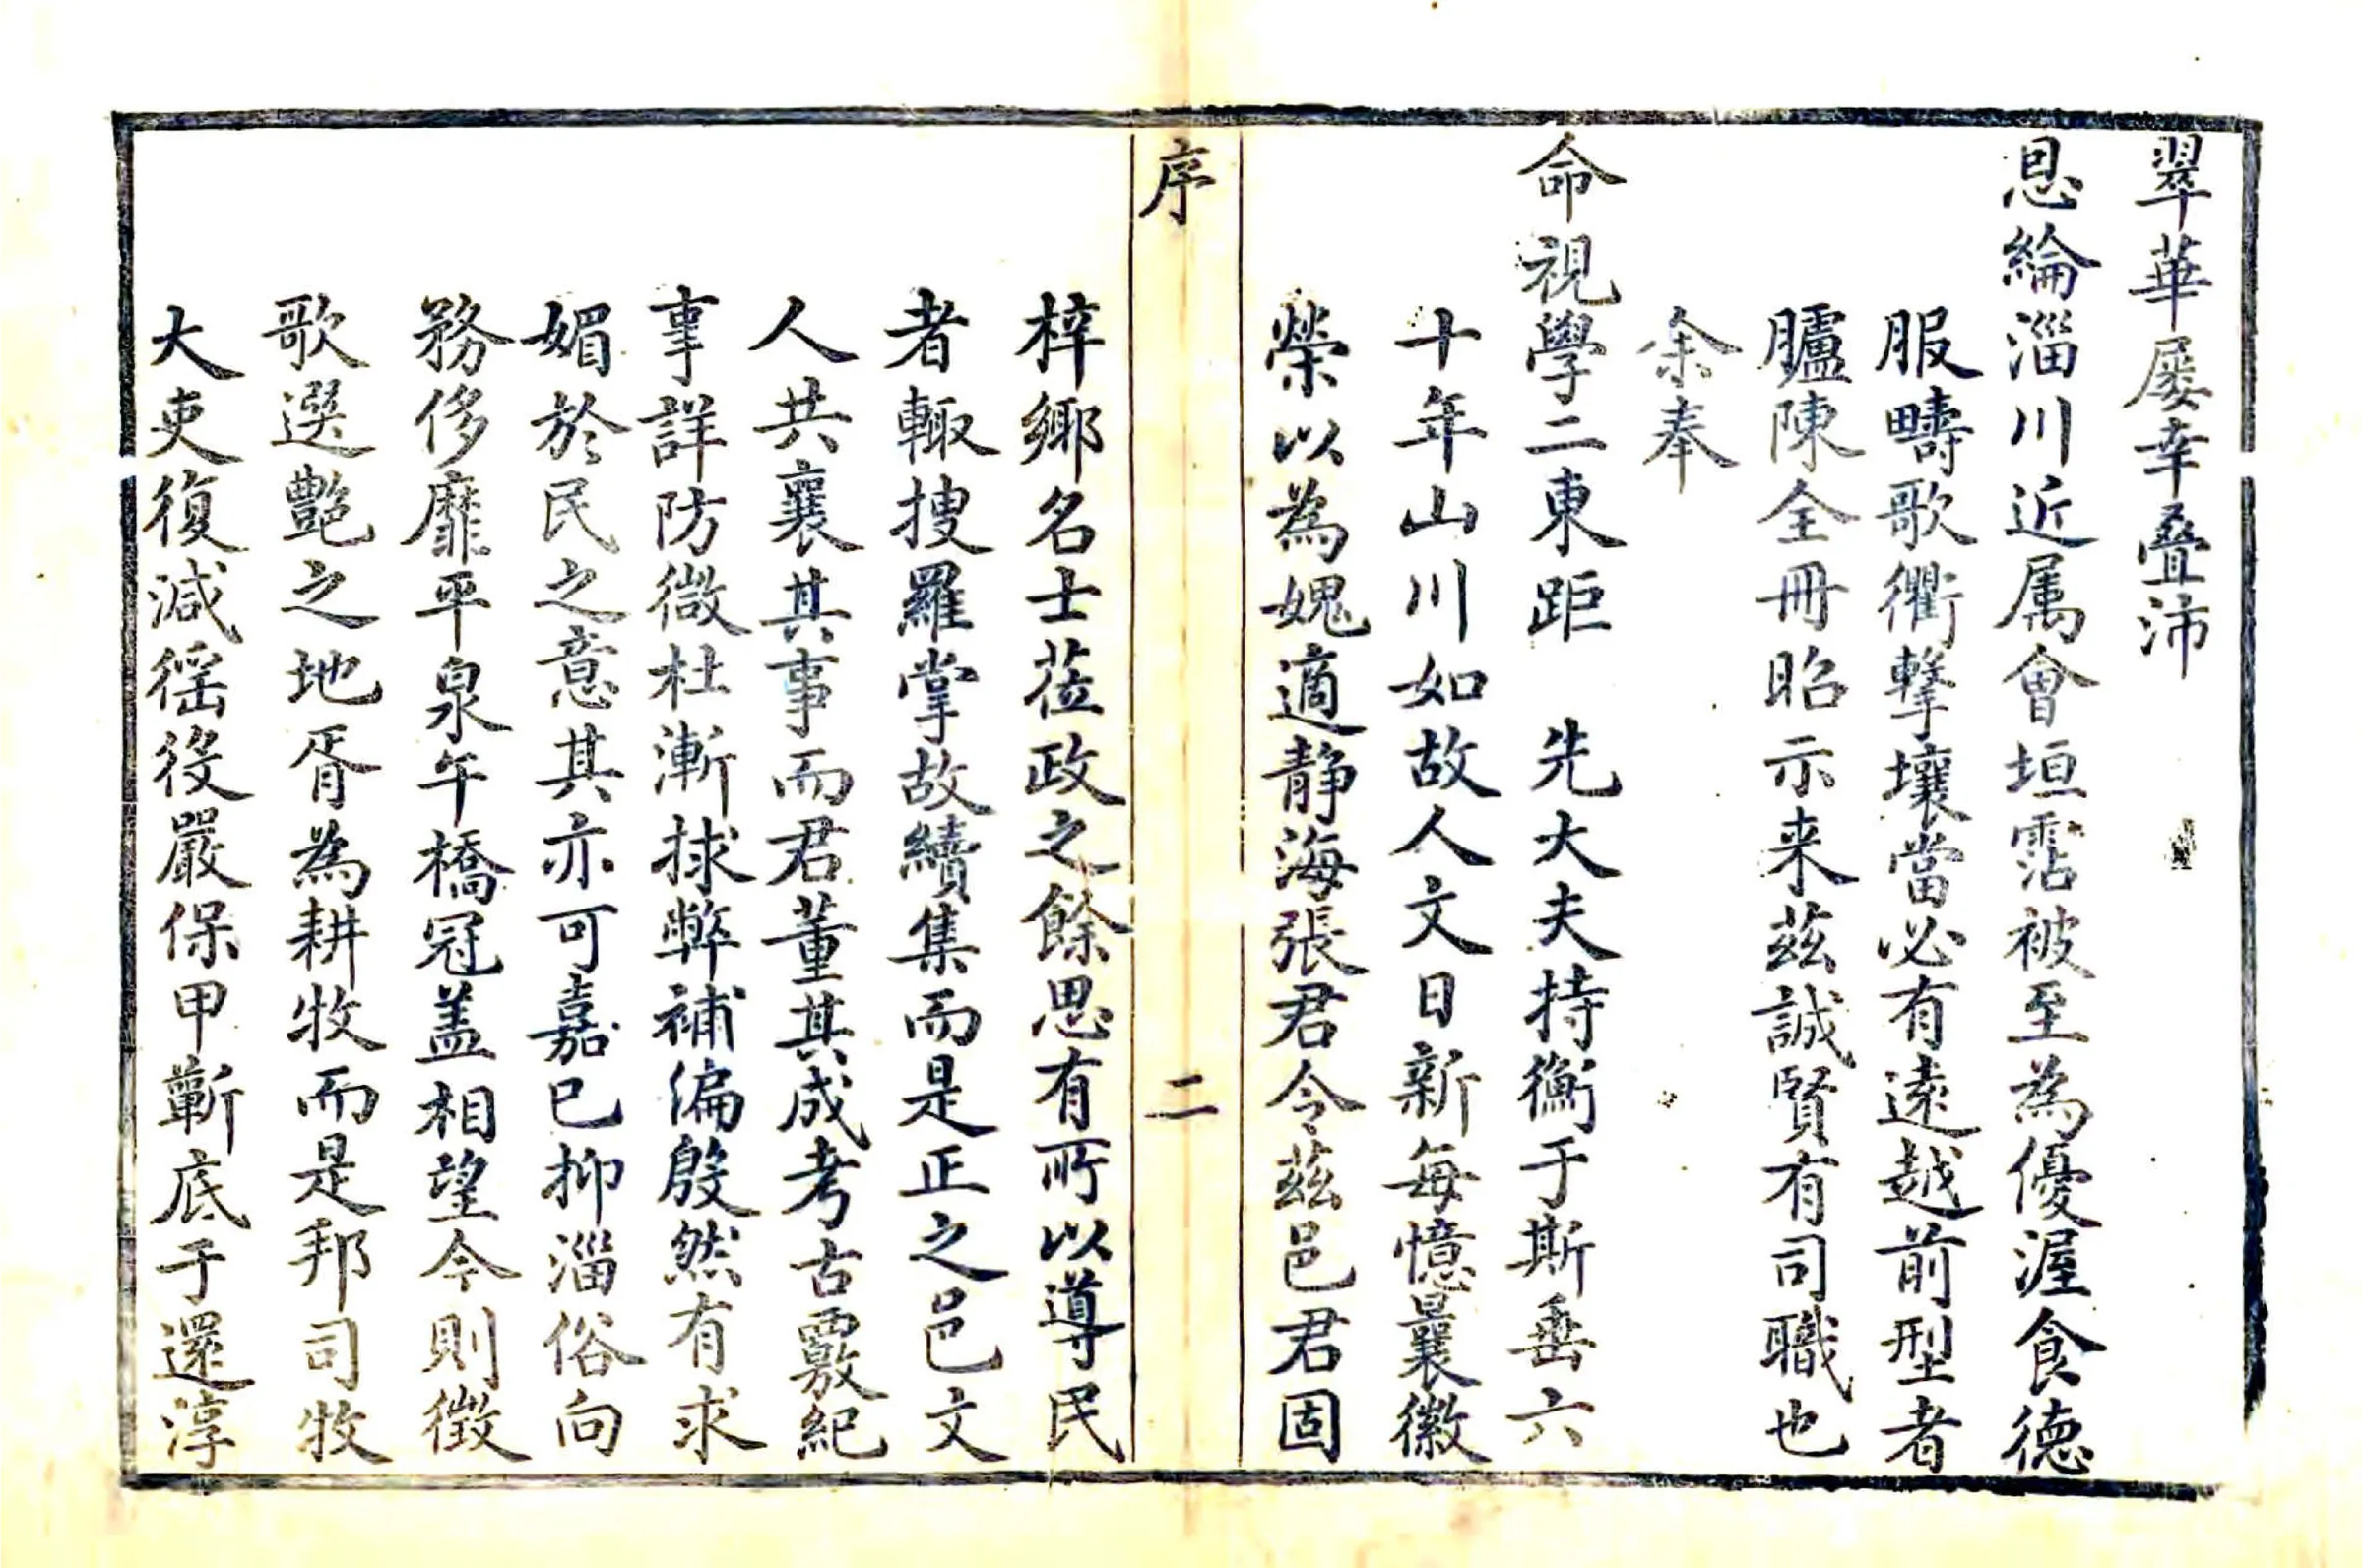 翠華屡幸疊沛
恩綸淄川近属會垣霑被至為優渥食德
服疇歌衢擊壤當必有遠越前型者
臚陳全冊昭示来茲誠賢有司職也
余奉
命視學二東距 先大夫持衡于斯垂六
十年山川如故人文日新每憶曩徽
榮以為媿適静海張君令茲邑君固
序
二
梓鄉名士莅政之餘思有所以導民
者輙搜羅掌故續集而是正之邑文
人共襄其事而君董其成考古覈紀
事詳防微杜漸捄弊補偏殷然有求
媚於民之意其亦可嘉已抑淄俗向
務侈靡平泉午橋冠盖相望今則徵
歌選艶之地胥為耕牧而是邦司牧
大吏復減徭役嚴保甲蘄底于還淳